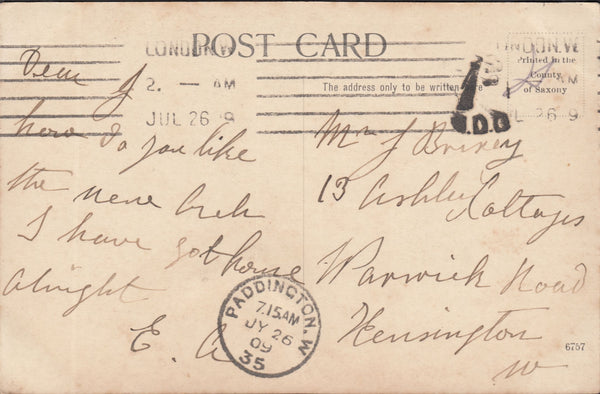 POST CARD
LONDON.W
2. — AM
JUL 26 9
LONDON.W
AM
JUL 26 9
Printed in the
County
of Saxony
The address only to be written here
1D
D.D.O
Dear J
how do you like
the new
I have got home
alright
E. A
Mr J
13 Ashley
Cottages
Warwick Road
Kensington
W
PADDINGTON.W
7.15AM
JY 26
09
35
6757